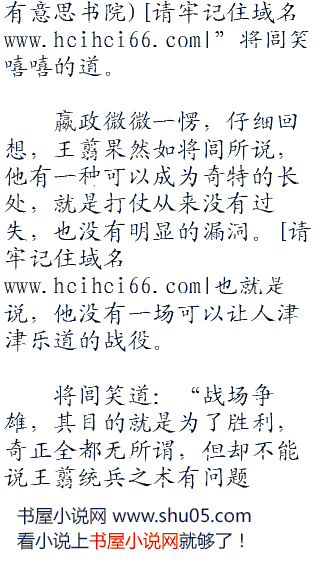 有意思书院)[请牢记住域名
www.hcihci66.com|”将闾笑
嘻嘻的道。
嬴政微微一愣，仔细回
想，王翦果然如将闾所说，
他有一种可以成为奇特的长
处，就是打仗从来没有过
失，也没有明显的漏洞。[请
牢记住域名
www.hcihci66.com|也就是
说，他没有一场可以让人津
津乐道的战役。
将闾笑道：“战场争
雄，其目的就是为了胜利，
奇正全都无所谓，但却不能
说王翦统兵之术有问题
书屋小说网 www.shu05.com
看小说上书屋小说网就够了！